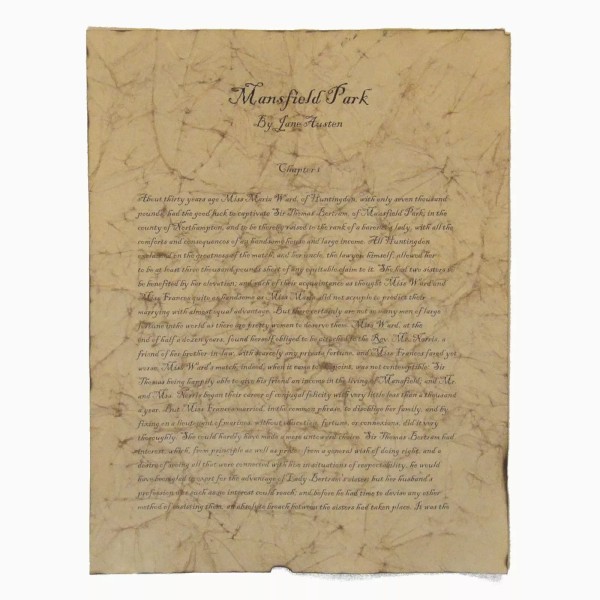 Mansfield Park
By Jane Austen
Chapter 1
About thirty years ago Miss Maria Ward, of Huntingdon, with only seven thousand
pounds, had the good luck to captivate Sir Thomas Bertram, of Mansfield Park, in the
county of Northampton, and to be thereby raised to the rank of a baronet's lady, with all the
comforts and consequences of an handsome house and large income. All Huntingdon
exclaimed on the greatness of the match, and her uncle, the lawyer, himself, allowed her
to be at least three thousand pounds short of any equitable claim to it. She had two sisters to
be benefited by her elevation; and such of their acquaintance as thought Miss Ward and
Miss Frances quite as handsome as Miss Maria, did not scruple to predict their
marrying with almost equal advantage. But there certainly are not so many men of large
fortune in the world as there are pretty women to deserve them. Miss Ward, at the
end of half a dozen years, found herself obliged to be attached to the Rev. Mr. Norris, a
friend of her brother-in-law, with scarcely any private fortune, and Miss Frances fared yet
worse. Miss Ward's match, indeed, when it came to the point, was not contemptible: Sir
Thomas being happily able to give his friend an income in the living of Mansfield; and Mr.
and Mrs. Norris began their career of conjugal felicity with very little less than a thousand
a year. But Miss Frances married, in the common phrase, to disoblige her family, and by
fixing on a lieutenant of marines, without education, fortune, or connexions, did it very
thoroughly. She could hardly have made a more untoward choice. Sir Thomas Bertram had
interest, which, from principle as well as pride—from a general wish of doing right, and a
desire of seeing all that were connected with him in situations of respectability, he would
have been glad to exert for the advantage of Lady Bertram's sister; but her husband's
profession was such as no interest could reach; and before he had time to devise any other
method of assisting them, an absolute breach between the sisters had taken place. It was the